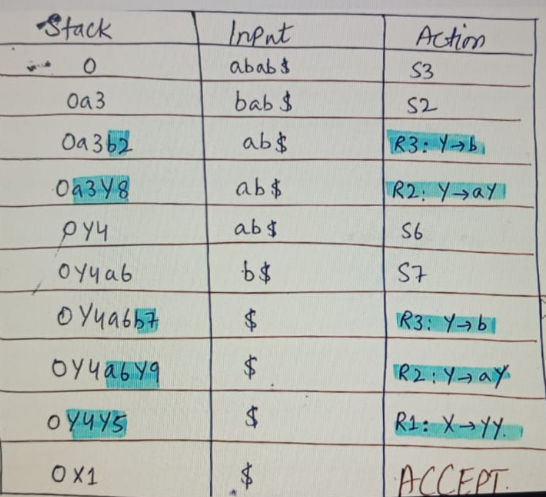 Stack Input Action
0 abab$ S3
0a3 bab$ S2
0a3b2 ab$ R3: Y→b
0a3Y8 ab$ R2: Y→aY
0Y4 ab$ S6
0Y4a6 b$ S7
0Y4a6b7 $ R3: Y→b
0Y4a6Y9 $ R2: Y→aY
0Y4Y5 $ R1: X→YY.
0X1 $ ACCEPT.